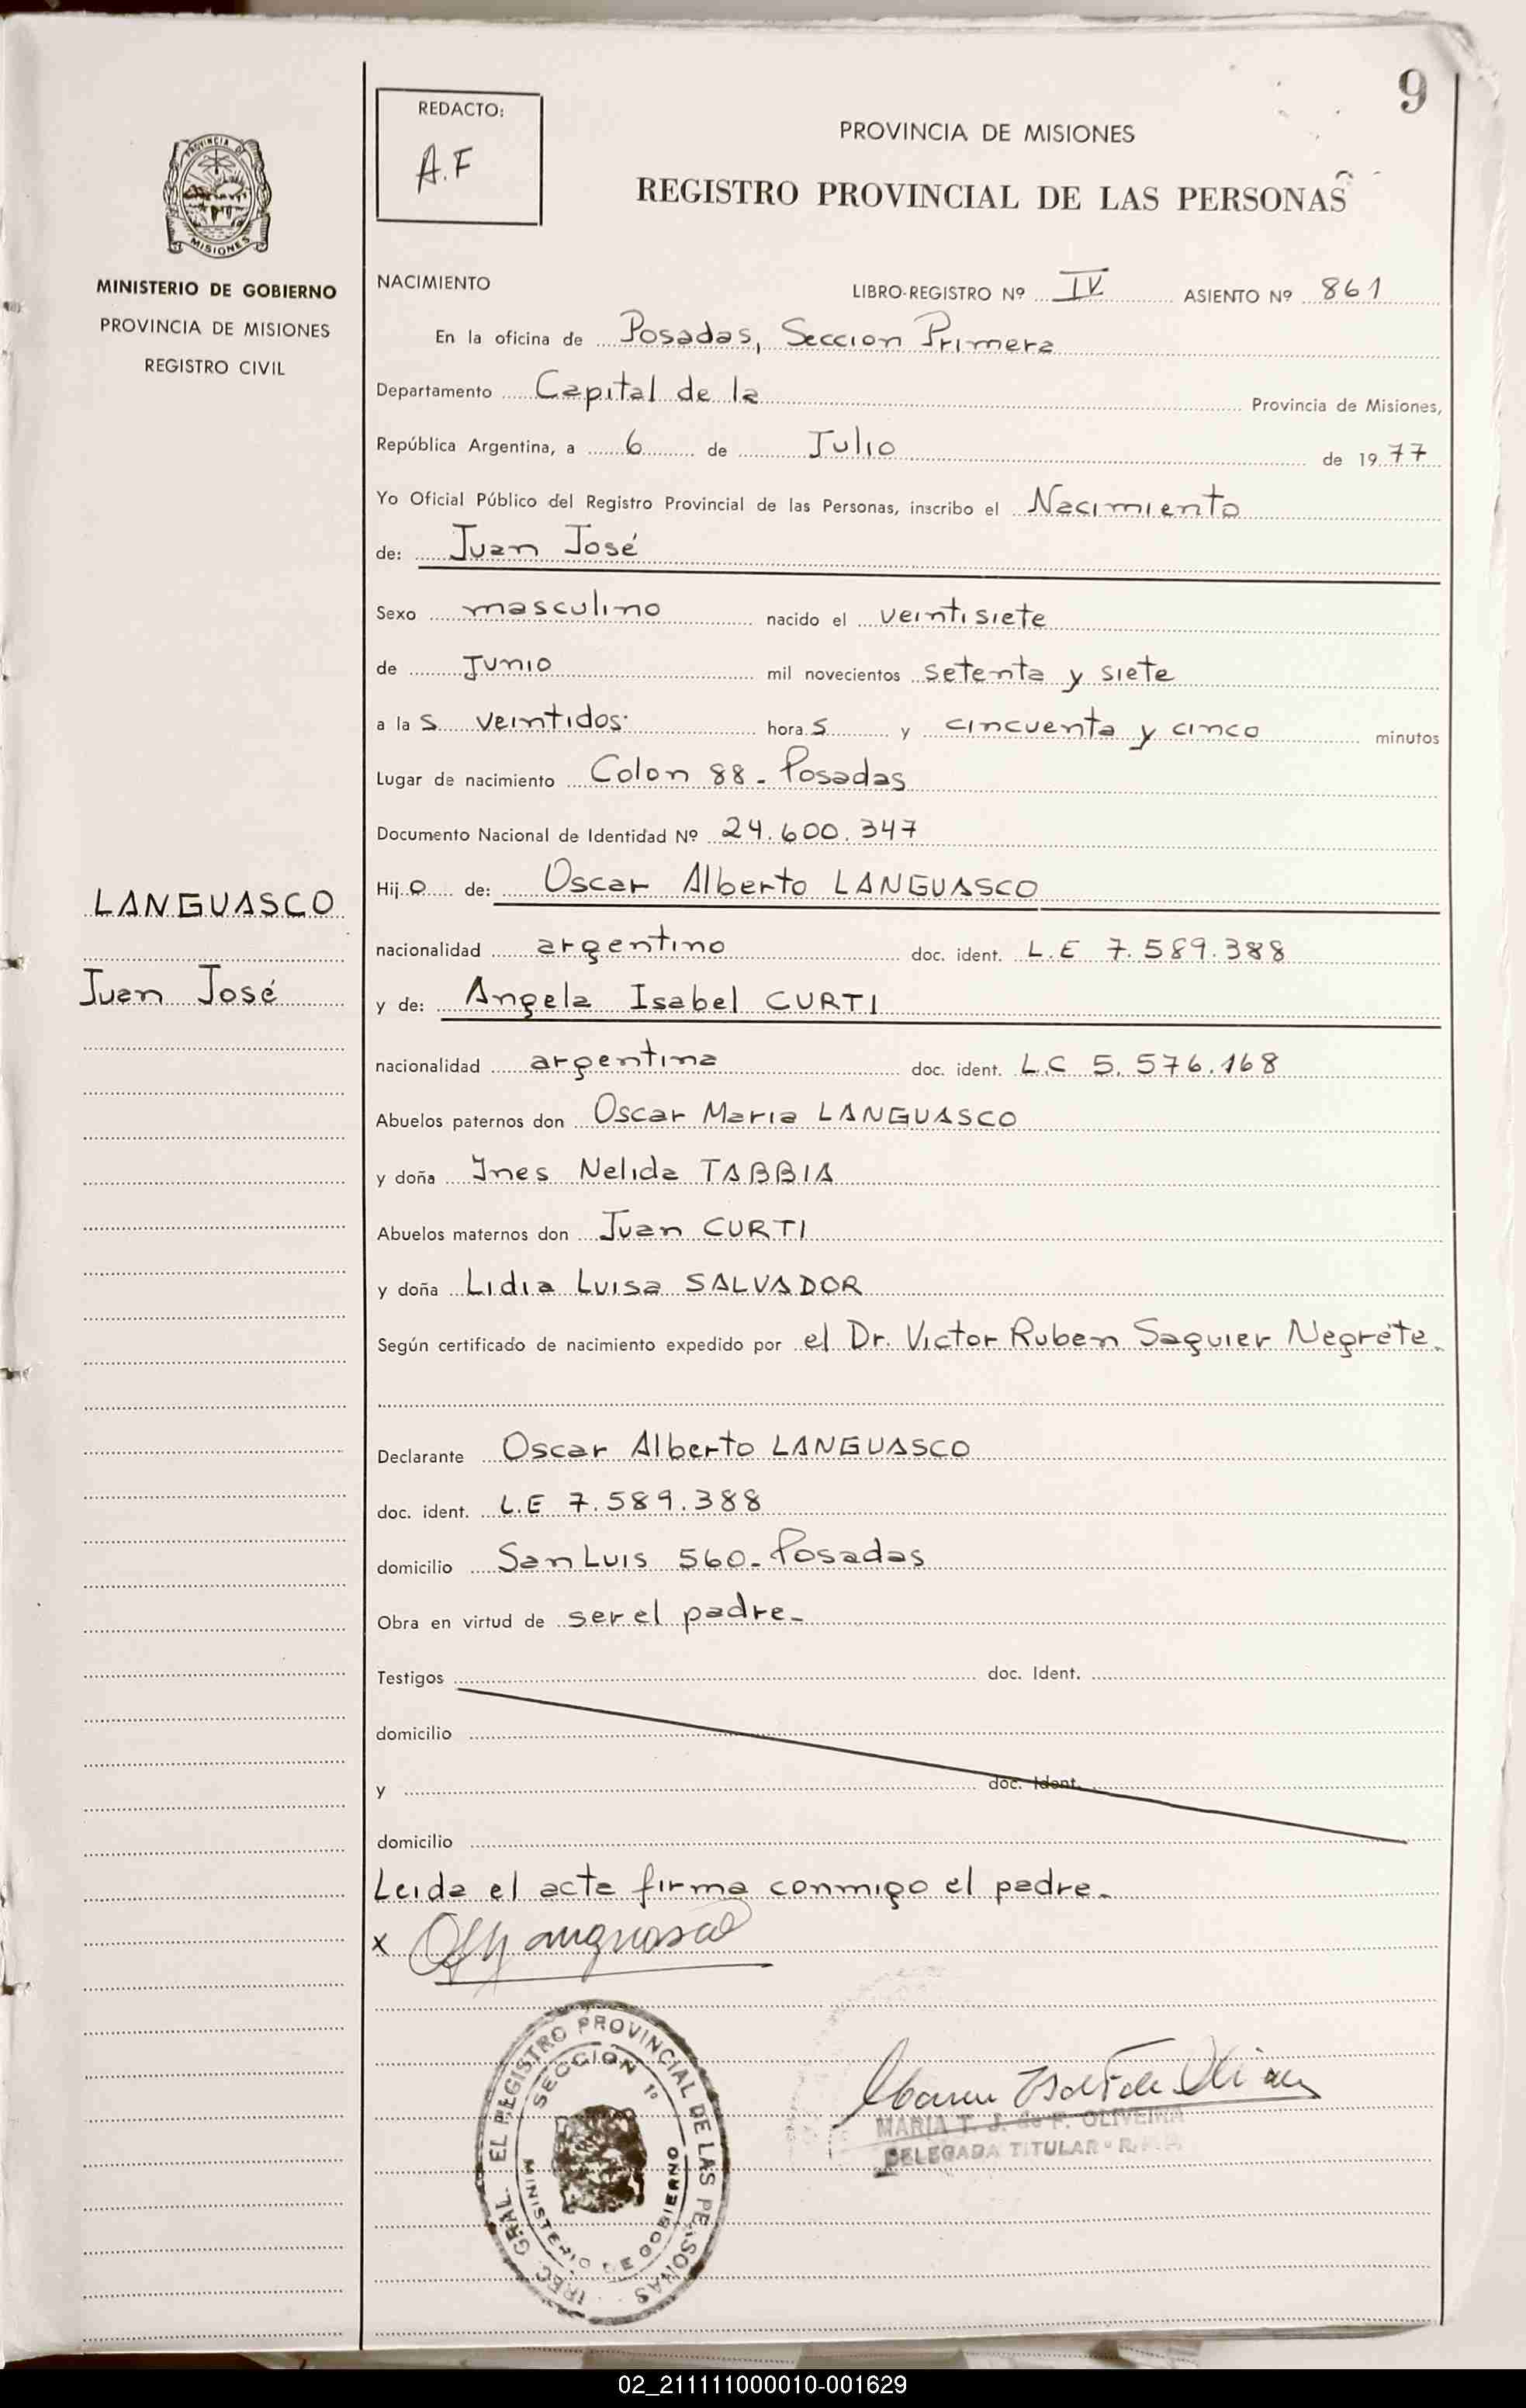 9
REDACTO:
A.F
PROVINCIA DE MISIONES
REGISTRO PROVINCIAL DE LAS PERSONAS
PROVINCIA DE
MISIONES
MINISTERIO DE GOBIERNO
PROVINCIA DE MISIONES
REGISTRO CIVIL
NACIMIENTO
LIBRO-REGISTRO Nº IV ASIENTO Nº 861
En la oficina de Posadas, Seccion Primera
Departamento Capital de la Provincia de Misiones,
República Argentina, a 6 de Julio de 1977
Yo Oficial Público del Registro Provincial de las Personas, inscribo el Nacimiento
de: Juan José
Sexo masculino nacido el veintisiete
de Junio mil novecientos setenta y siete
a las veintidos hora s y cincuenta y cinco minutos
Lugar de nacimiento Colon 88 - Posadas
Documento Nacional de Identidad Nº 24.600.347
LANGUASCO
Juan José
Hijo de: Oscar Alberto LANGUASCO
nacionalidad argentino doc. ident. L.E 7.589.388
y de: Angela Isabel CURTI
nacionalidad argentina doc. ident. L.C 5.576.168
Abuelos paternos don Oscar Maria LANGUASCO
y doña Ines Nelida TABBIA
Abuelos maternos don Juan CURTI
y doña Lidia Luisa SALVADOR
Según certificado de nacimiento expedido por el Dr. Victor Ruben Saguier Negrete.
Declarante Oscar Alberto LANGUASCO
doc. ident. L.E 7.589.388
domicilio San Luis 560 - Posadas
Obra en virtud de ser el padre -
Testigos doc. Ident.
domicilio
y doc. Ident.
domicilio
Leida el acta firma conmigo el padre.
x
EL REGISTRO PROVINCIAL DE LAS PERSONAS
SECCION 1º
MINISTERIO DE GOBIERNO
GRAL.
MARIA T. J. de F. OLIVEIRA
DELEGADA TITULAR
02_211111000010-001629